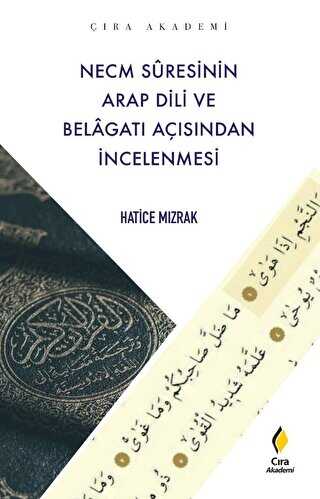 ÇIRA AKADEMİ
NECM SÛRESİNİN
ARAP DİLİ VE
BELÂGATI AÇISINDAN
İNCELENMESİ
HATİCE MIZRAK
إِذَا هَوٰىۙ
مَا ضَلَّ صَاحِبُكُمْ وَمَا غَوٰىۚ
عَلَّمَهُ شَد۪يدُ الْقُوٰىۙ
ذُو
وَمَا
القرآن الكريم
Çıra
Akademi